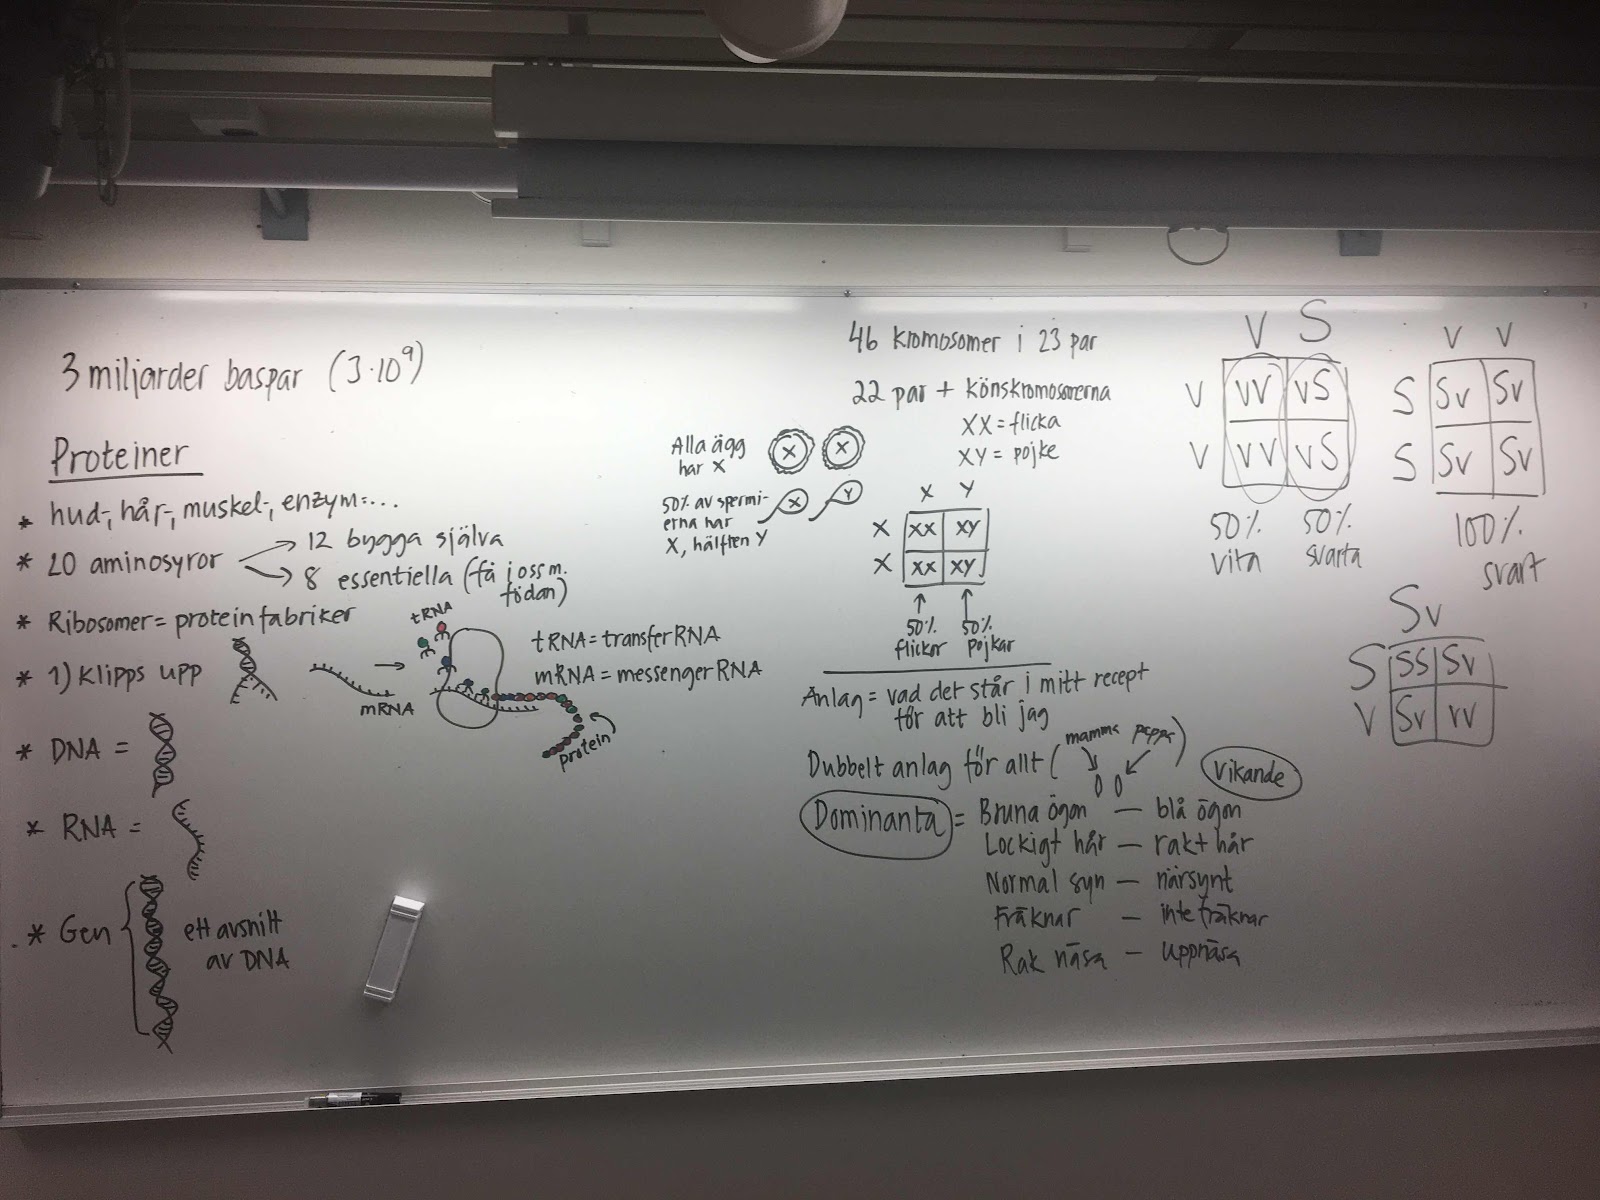 3 miljarder baspar (3·10⁹)
Proteiner
* hud-, hår-, muskel-, enzym-...
* 20 aminosyror
12 bygga själva
8 essentiella (få i oss m.
födan)
* Ribosomer = proteinfabriker
* 1) Klipps upp
mRNA
tRNA
protein
tRNA = transferRNA
mRNA = messengerRNA
* DNA =
* RNA =
* Gen
ett avsnitt
av DNA
46 kromosomer i 23 par
22 par + könskromosomerna
XX = flicka
XY = pojke
Alla ägg
har X
X X
50% av spermi-
erna har
X, hälften Y
X Y
X Y
X XX XY
X XX XY
50% 50%
flickor pojkar
Anlag = vad det står i mitt recept
för att bli jag
Dubbelt anlag för allt (mamma pappa)
Vikande
Dominanta = Bruna ögon — blå ögon
Lockigt hår — rakt hår
Normal syn — närsynt
Fräknar — inte fräknar
Rak näsa — uppnäsa
V S
V VV VS
V VV VS
50% 50%
vita svarta
V V
S Sv Sv
S Sv Sv
100%
svart
S v
S SS Sv
V Sv vv